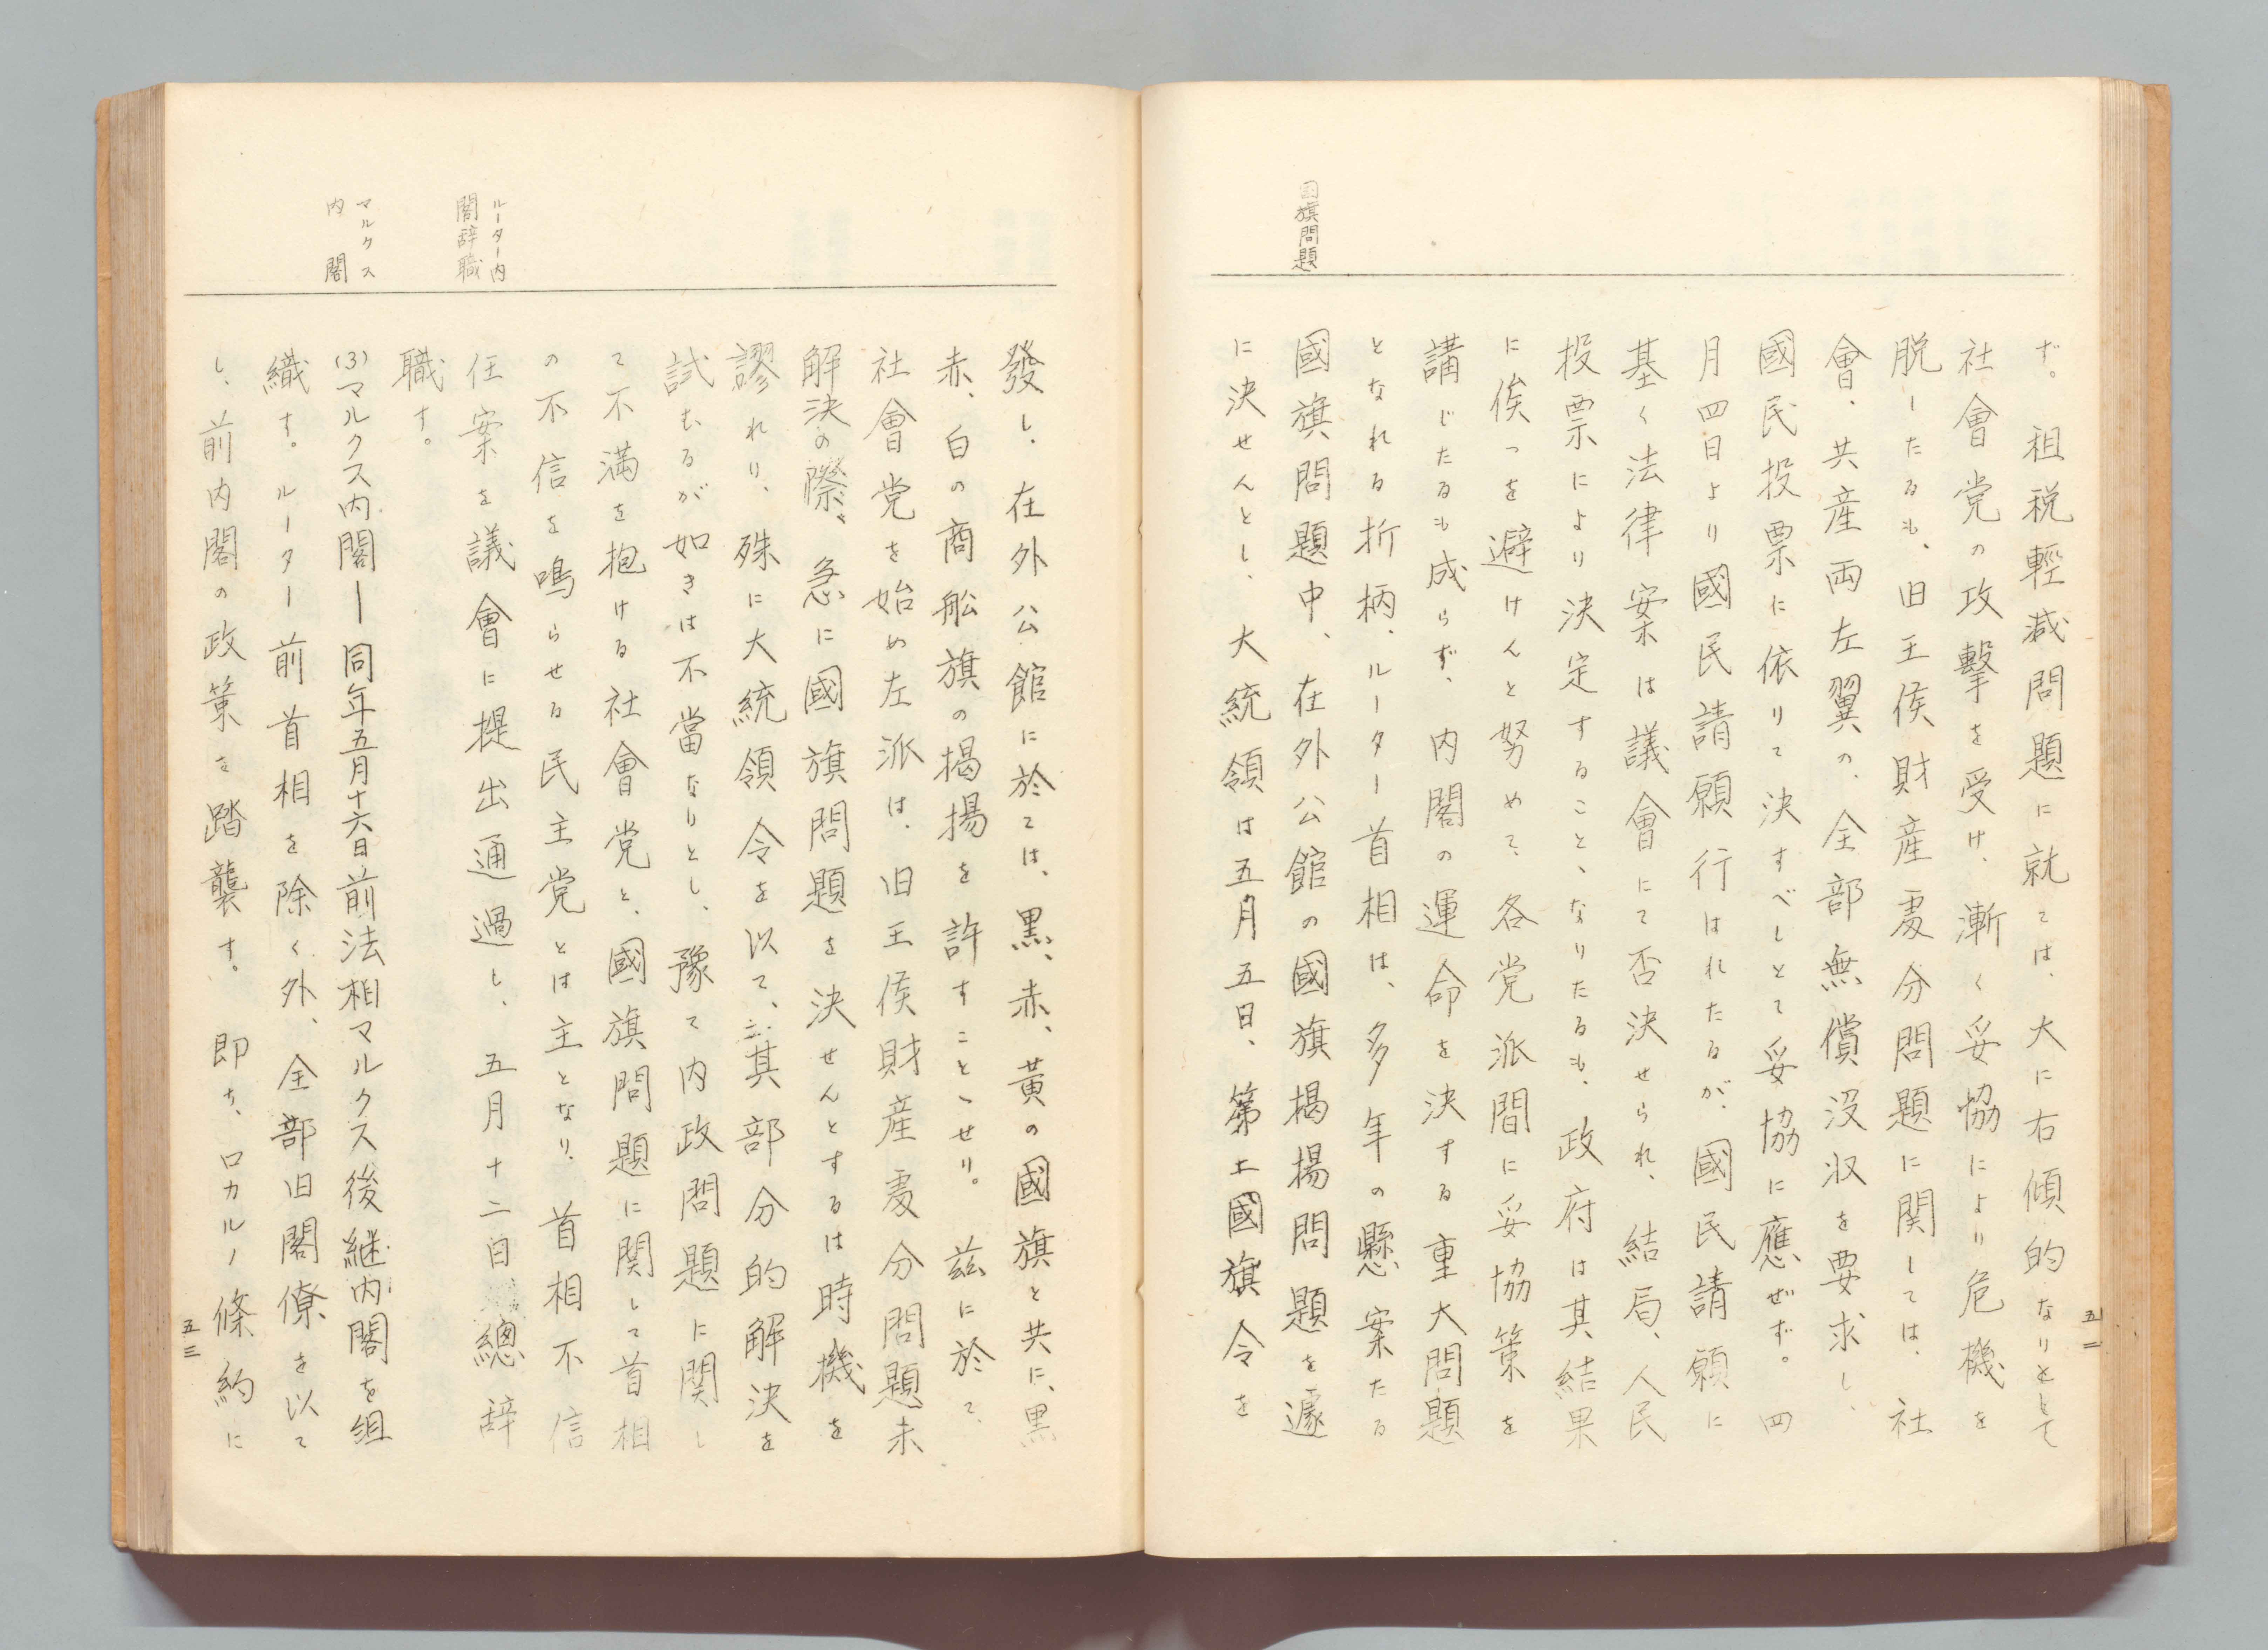 国旗問題
ず。租税輕減問題に就ては、大に右傾的なりとして
社會党の攻擊を受け、漸く妥協により危機を
脱したるも、旧王侯財産処分問題に関しては、社
會、共産両左翼の、全部無償没収を要求し、
國民投票に依りて決すべしとて妥協に應ぜず。四
月四日より國民請願行はれたるが、國民請願に
基く法律案は議會にて否決せられ、結局、人民
投票により決定すること、なりたるも、政府は其結果
に俟つを避けんと努めて、各党派間に妥協策を
講じたるも成らず、内閣の運命を決する重大問題
となれる折柄、ルーター首相は、多年の懸案たる
國旗問題中、在外公館の國旗揭揚問題を遽
に決せんとし、大統領は五月五日、第二國旗令を
五二
ルーター内
閣辞職
マルクス
内閣
發し、在外公館に於ては、黒、赤、黄の國旗と共に、黒
赤、白の商船旗の揭揚を許すこととせり。茲に於て、
社會党を始め左派は、旧王侯財産処分問題未
解決の際、急に國旗問題を決せんとするは時機を
謬れり、殊に大統領令を以て、其部分的解決を
試むるが如きは不當なりとし、豫て内政問題に関し
て不満を抱ける社會党と、國旗問題に関して首相
の不信を鳴らせる民主党とは主となり、首相不信
任案を議會に提出通過し、五月十二日總辞
職す。
(3)マルクス内閣ー同年五月十六日前法相マルクス後継内閣を組
織す。ルーター前首相を除く外、全部旧閣僚を以て
し、前内閣の政策を踏襲す。即ち、ロカルノ條約に
五三